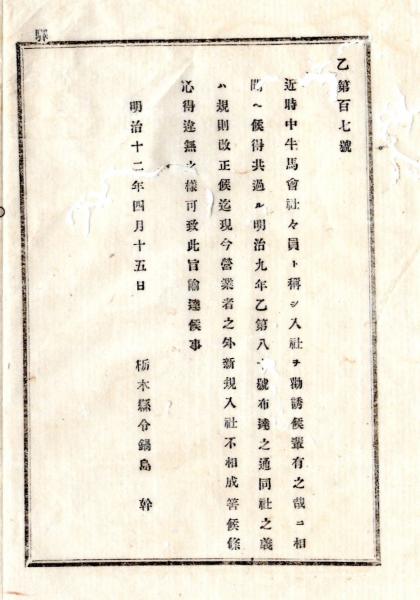 驛
乙第百七號
近時中牛馬會社々員ト稱シ入社ヲ勸誘候輩有之哉ニ相
聞ヘ候得共過ル明治九年乙第八十號布達之通同社之義
ハ規則改正候迄現今營業者之外新規入社不相成筈候條
心得違無之樣可致此旨諭達候事
明治十二年四月十五日
栃木縣令鍋島幹